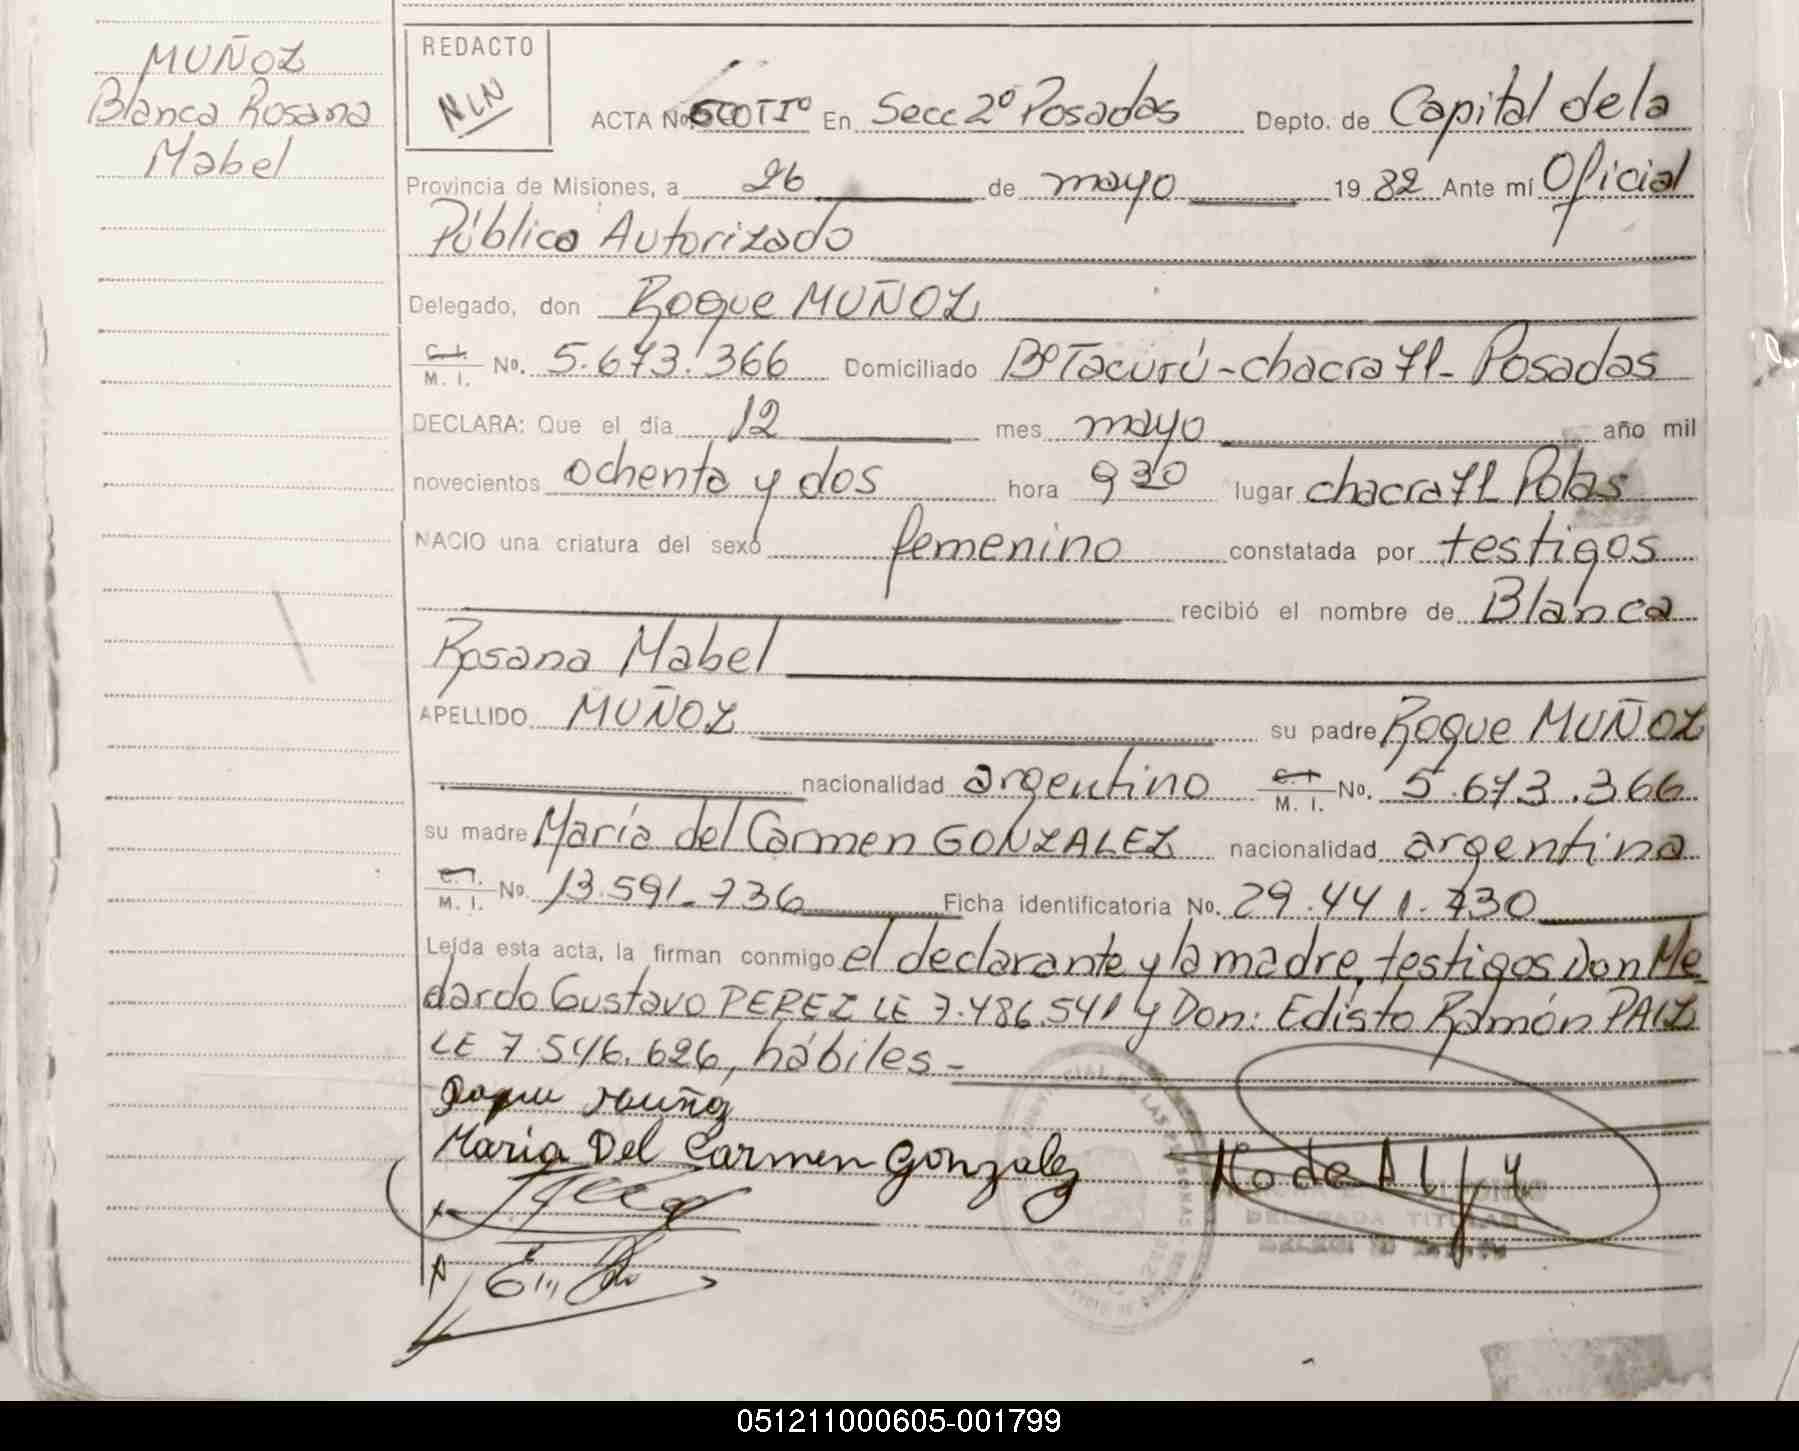 MUÑOZ
Blanca Rosana
Mabel
REDACTO
NLN
ACTA No. En Secc 2º Posadas Depto. de Capital de la
Provincia de Misiones, a 26 de mayo 19 82 Ante mí Oficial
Público Autorizado
Delegado, don Roque MUÑOZ
C. I. M. I. No. 5.673.366 Domiciliado Bº Tacurú - chacra 71 - Posadas
DECLARA: Que el día 12 mes mayo año mil
novecientos ochenta y dos hora 9 30 lugar chacra 71 Pdas
NACIO una criatura del sexo femenino constatada por testigos
recibió el nombre de Blanca
Rosana Mabel
APELLIDO MUÑOZ su padre Roque MUÑOZ
nacionalidad argentino C. I. M. I. No. 5.673.366
su madre María del Carmen GONZALEZ nacionalidad argentina
C. I. M. I. No. 13.591.736 Ficha identificatoria No. 29.441.730
Leída esta acta, la firman conmigo el declarante y la madre, testigos Don Me
dardo Gustavo PEREZ LE 7.486.541 y Don: Edisto Ramón PAIZ
LE 7.546.626, hábiles -
Roque Muñoz
Maria Del Carmen Gonzalez
DELEGADA TITULAR
051211000605-001799